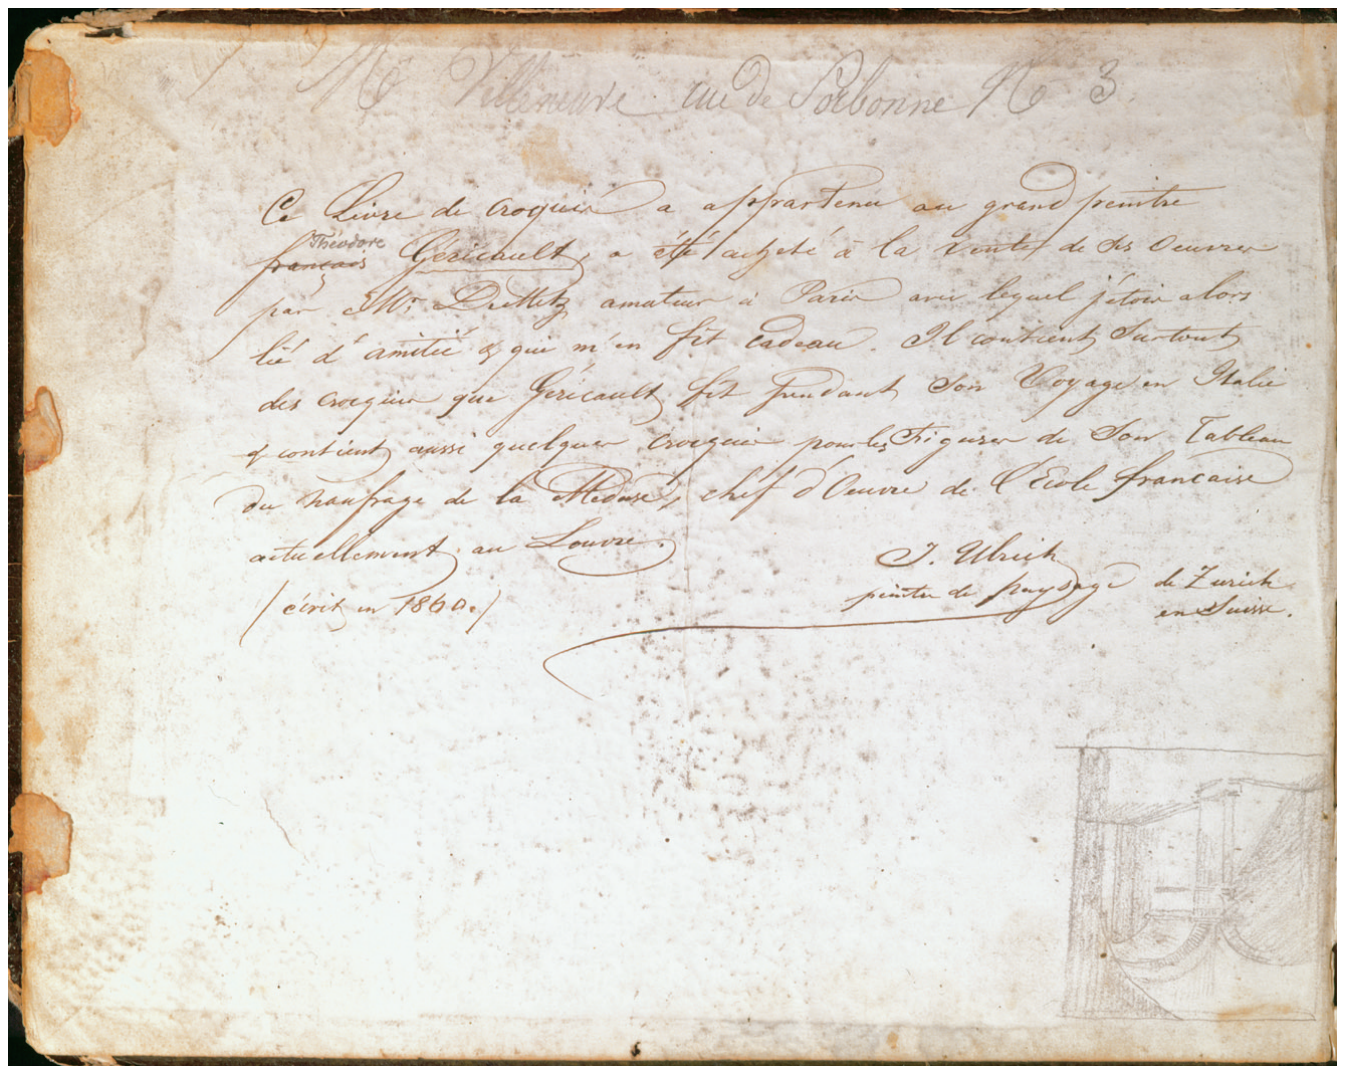 Mr Villeneuve rue de Sorbonne No 3.
Ce Livre de croquis a appartenu au grand peintre
Théodore
français Géricault, a été acheté à la vente de ses Oeuvres
par Mr. amateur à Paris avec lequel j'étois alors
lié d'amitié & qui m'en fit cadeau. Il contient surtout
des croquis que Géricault fit pendant son Voyage en Italie
& contient aussi quelques croquis pour les Figures de son Tableau
du naufrage de la Méduse, chef d'Oeuvre de l'Ecole francaise
actuellement au Louvre.
J. Ulrich
peintre de paysage de Zurich
en Suisse.
(écrit en 1860.)